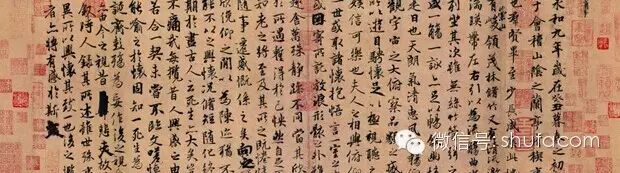 永和九年歲在癸丑暮春之初
于會稽山陰之蘭亭脩稧
也羣賢畢至少長咸集此地
峻領茂林脩竹又有清流激
湍暎帶左右引以為流觴曲
列坐其次雖無絲竹管弦之
盛一觴一詠亦足以暢敘幽
是日也天朗氣清惠風和暢仰
觀宇宙之大俯察品類之盛
所以遊目騁懷足以極視聽之
娛信可樂也夫人之相與俯仰
一世或取諸懷抱悟言一室之
或因寄所託放浪形骸之外雖
趣舍萬殊靜躁不同當其欣
於所遇暫得於己怏然自足不
知老之將至及其所之既惓情
隨事遷感慨係之矣向之
欣俛仰之閒以為陳迹猶不
能不以之興懷況脩短隨化終
期於盡古人云死生亦大矣豈
不痛哉每攬昔人興感之由
若合一契未嘗不臨文嗟悼
能喻之於懷固知一死生為
誕齊彭殤為妄作後之視今
由今之視昔悲夫故
敘時人錄其所述雖世殊事
異所以興懷其致一也後之攬
者亦將有感於斯
微信号: shufa.com